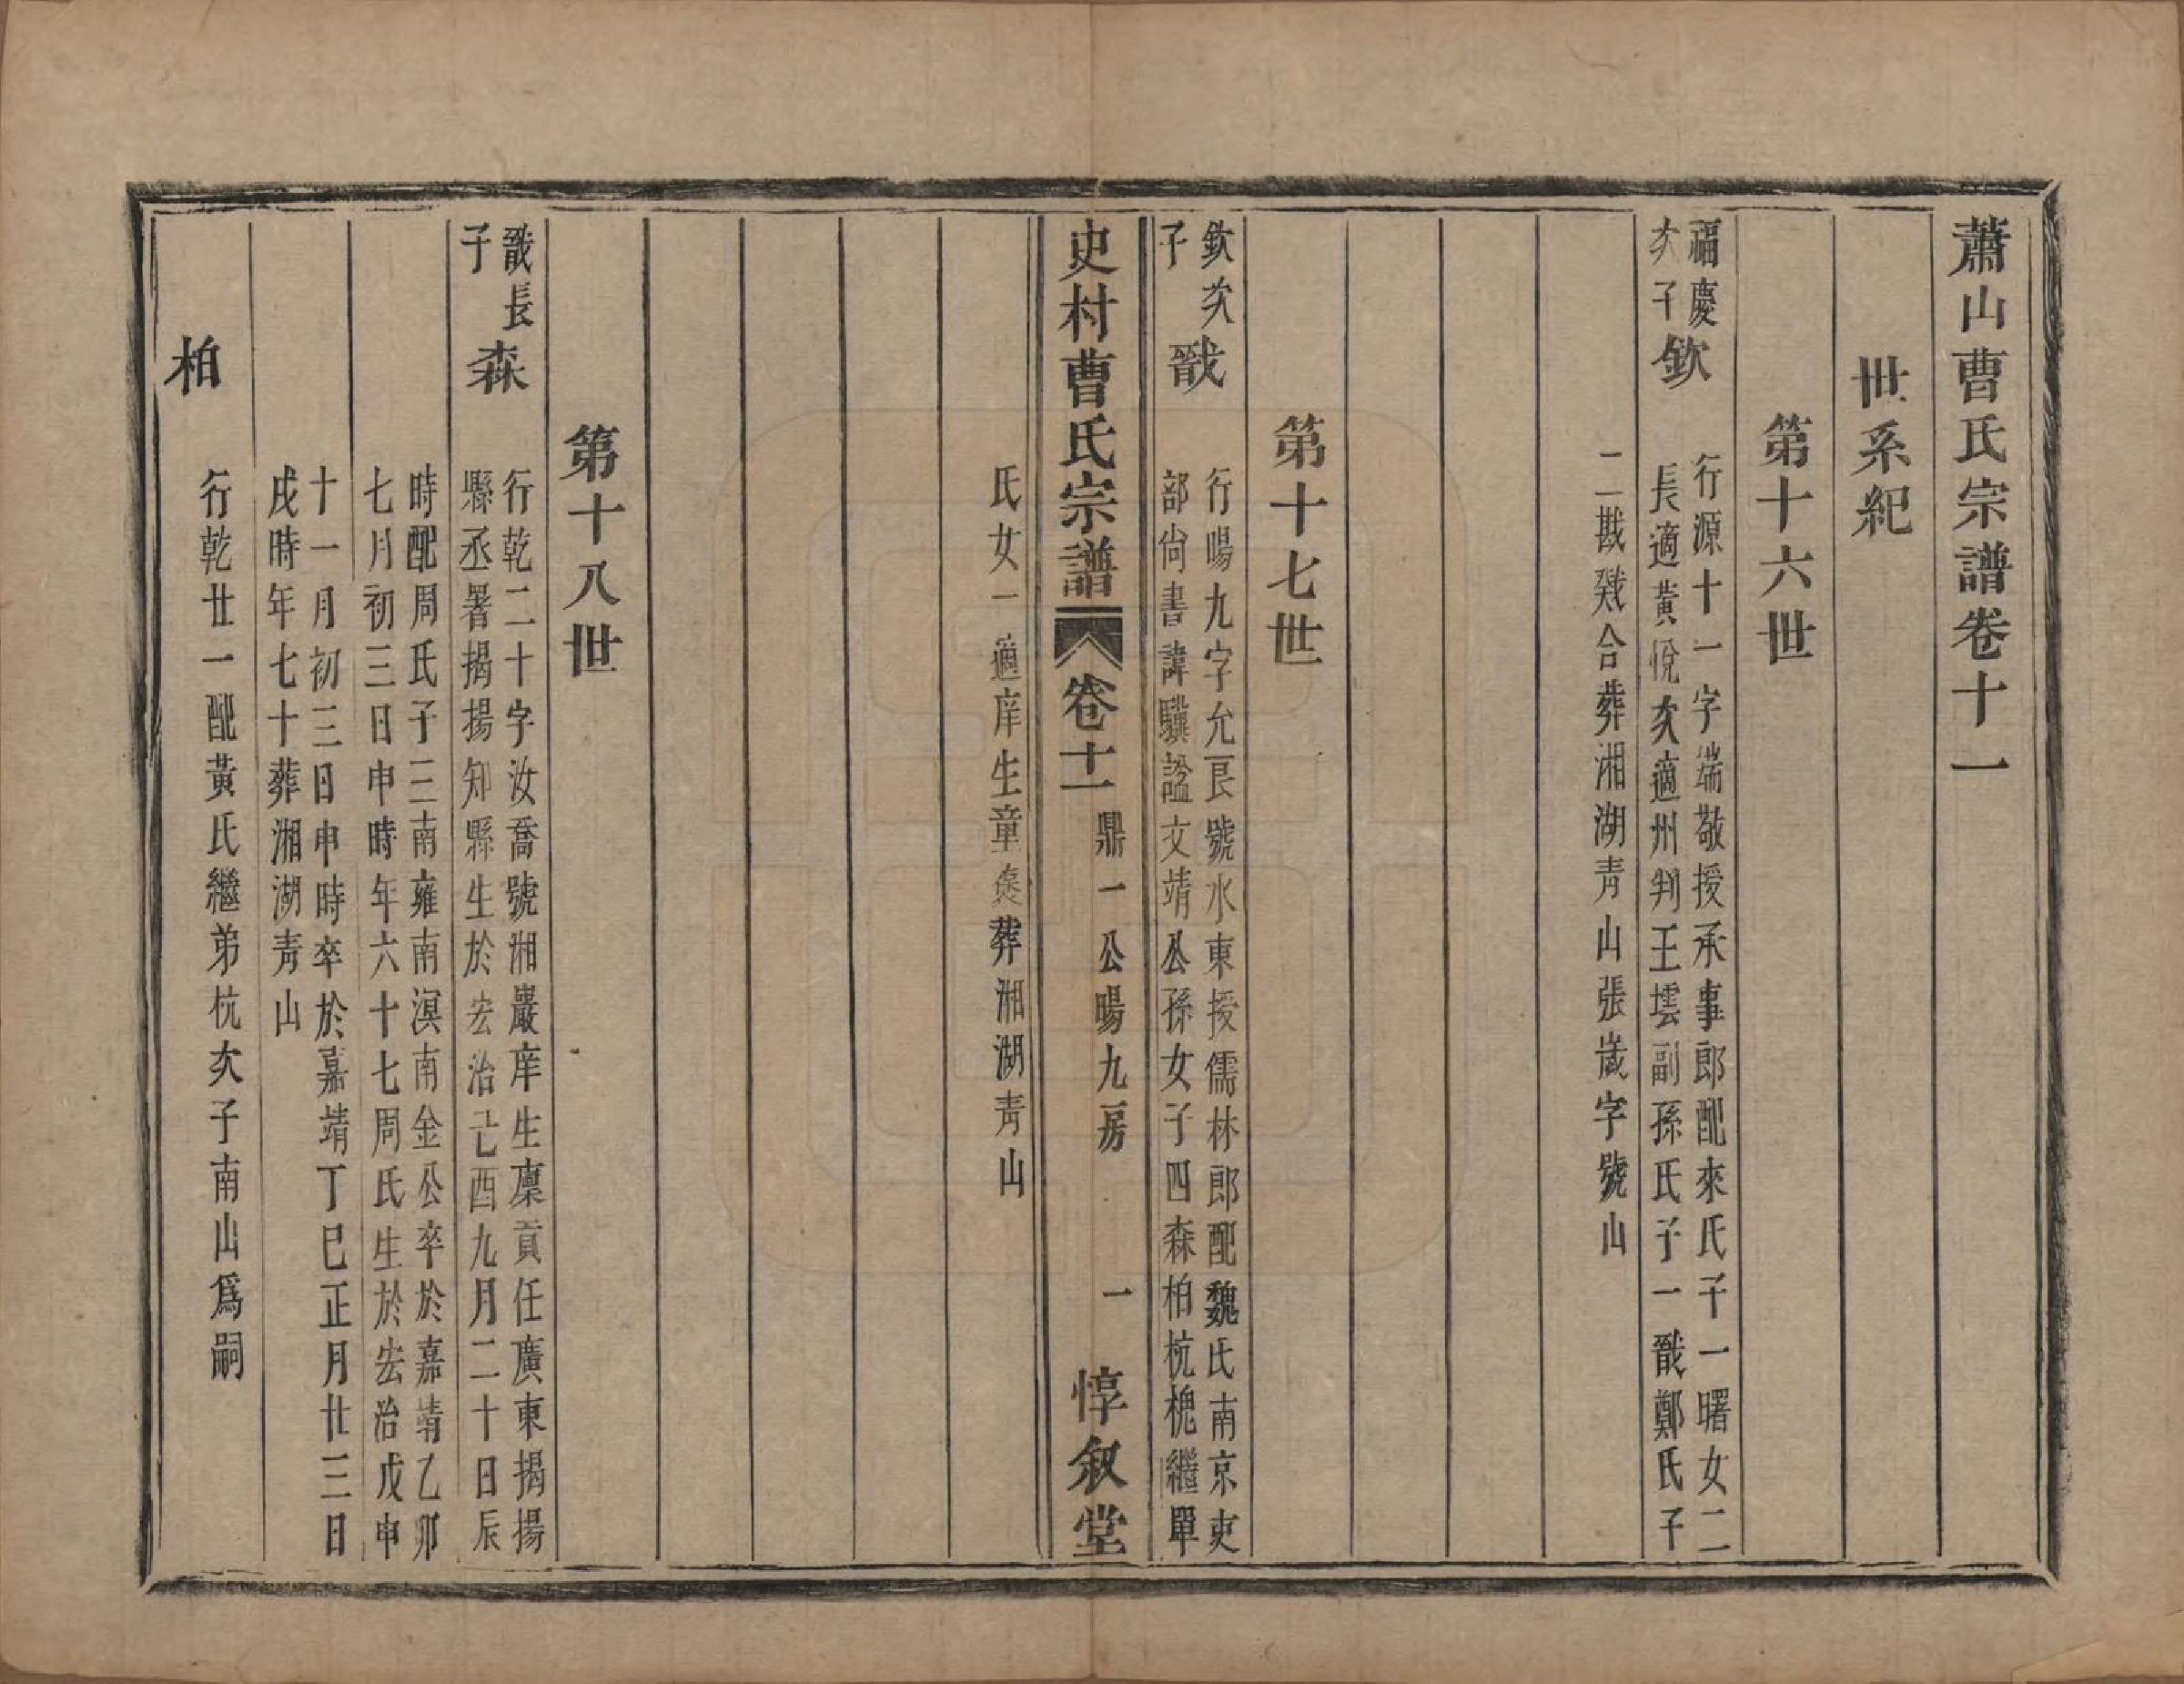 蕭山曹氏宗譜卷十一
世系紀
第十六世
福慶
次子
欽
行源十一字端敬授承事郎配來氏子一曙女二
長適黃悅次適州判王壜副孫氏子一戩鄭氏子
二戡戣合葬湘湖青山張嵗字號山
第十七世
欽次
子
戩
行暘九字允艮號水東授儒林郎配魏氏南京吏
部尙書諱驥諡文靖公孫女子四森柏杭槐繼單
史村曹氏宗譜
卷十一
鼎一公暘九房
一
惇叙堂
氏女一適庠生童葬湘湖青山
第十八世
戩長
子
森
行乾二十字汝喬號湘巖庠生廪貢任廣東揭揚
縣丞署揭揚知縣生於宏治已酉九月二十日辰
時配周氏子三南雍南溟南金公卒於嘉靖乙卯
七月初三日申時年六十七周氏生於宏治戊申
十一月初三日申時卒於嘉靖丁巳正月廿三日
戌時年七十葬湘湖青山
柏
行乾廿一配黃氏繼弟杭次子南山爲嗣